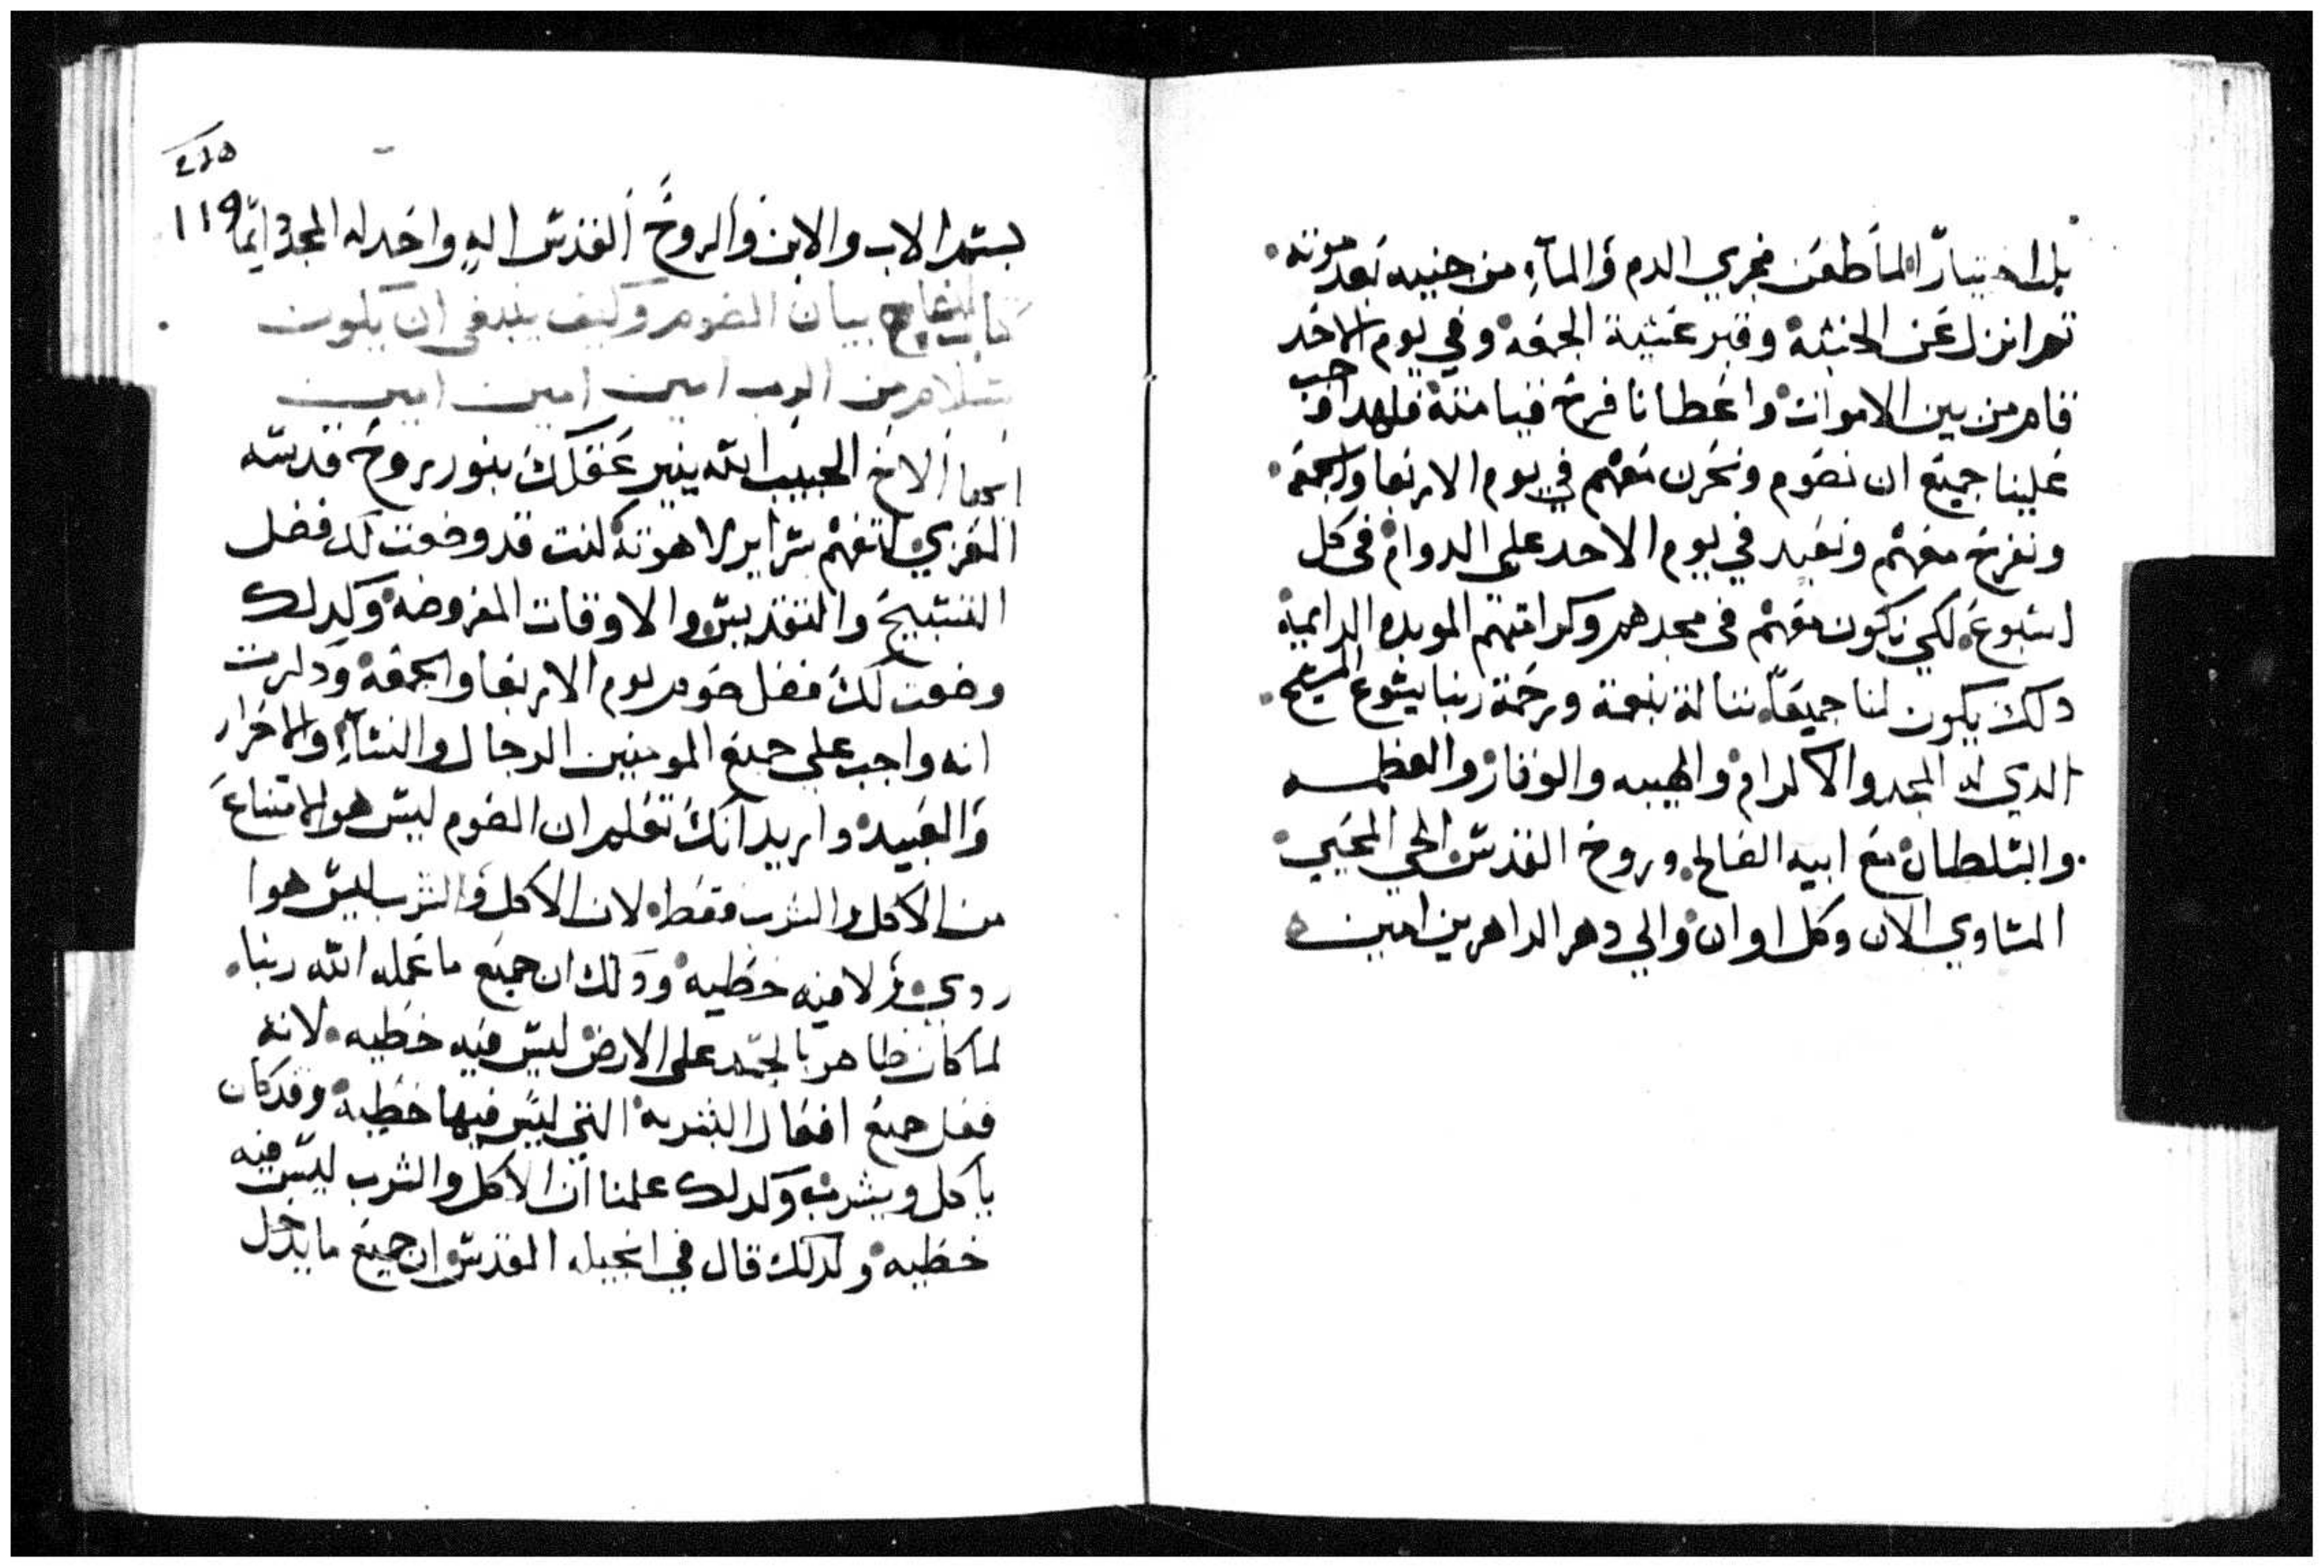 بل اختيارا لما طعن فجري الدم والمآء من جنبه بعد موته
تم انزل عن الخشبة وقبر عشية الجمعة وفي يوم الاحد
قام من بين الاموات واعطانا فرح قيامته فلهدا وجب
علينا جميع ان نصوم ونحزن معهم في يوم الاربعا والجمعة
ونفرح معهم ونعيد في يوم الاحد علي الدوام في كل
اسبوع لكي نكون معهم في مجدهم وكرامتهم الموبده الدايمة
دلك يكون لنا جميعا نناله بنعمة ورحمة ربنا يشوع المسيح
الدي له المجد والاكرام والهيبه والوقار والعظمه
والسلطان مع ابيه الصالح وروح القدس الحي المحيي
المساوي الان وكل اوان والي دهر الداهرين امين
٢١٥
119
بسم الاب والابن والروح القدس اله واحد له المجد دايما
كتاب بيان الصوم وكيف ينبغي ان يكون
بسلام من الرب امين امين امين
ايها الاخ الحبيب الله ينير عقلك بنور روح قدسه
المعزي لتفهم سراير لاهوته كنت قد وضعت لك فضل
التسبيح والتقديس والاوقات المفروضة وكدلك
وضعت لك فضل صوم يوم الاربعا والجمعة ودكرت
انه واجب علي جميع المومنين الرجال والنسآء والاحرار
والعبيد واريد انك تعلم ان الصوم ليس هو الامتناع
من الاكل والشرب فقط لان الاكل والشرب ليس هوا
ردي ولا فيه خطيه ودلك ان جميع ما عمله الله ربنا
لما كان ظاهر بالجسد علي الارض ليس فيه خطيه لانه
فعل جميع افعال البشرية التي ليس فيها خطية وقد كان
ياكل ويشرب وكدلك علمنا ان الاكل والشرب ليس فيه
خطيه ولدلك قال في انجيله المقدس ان جميع ما يدخل